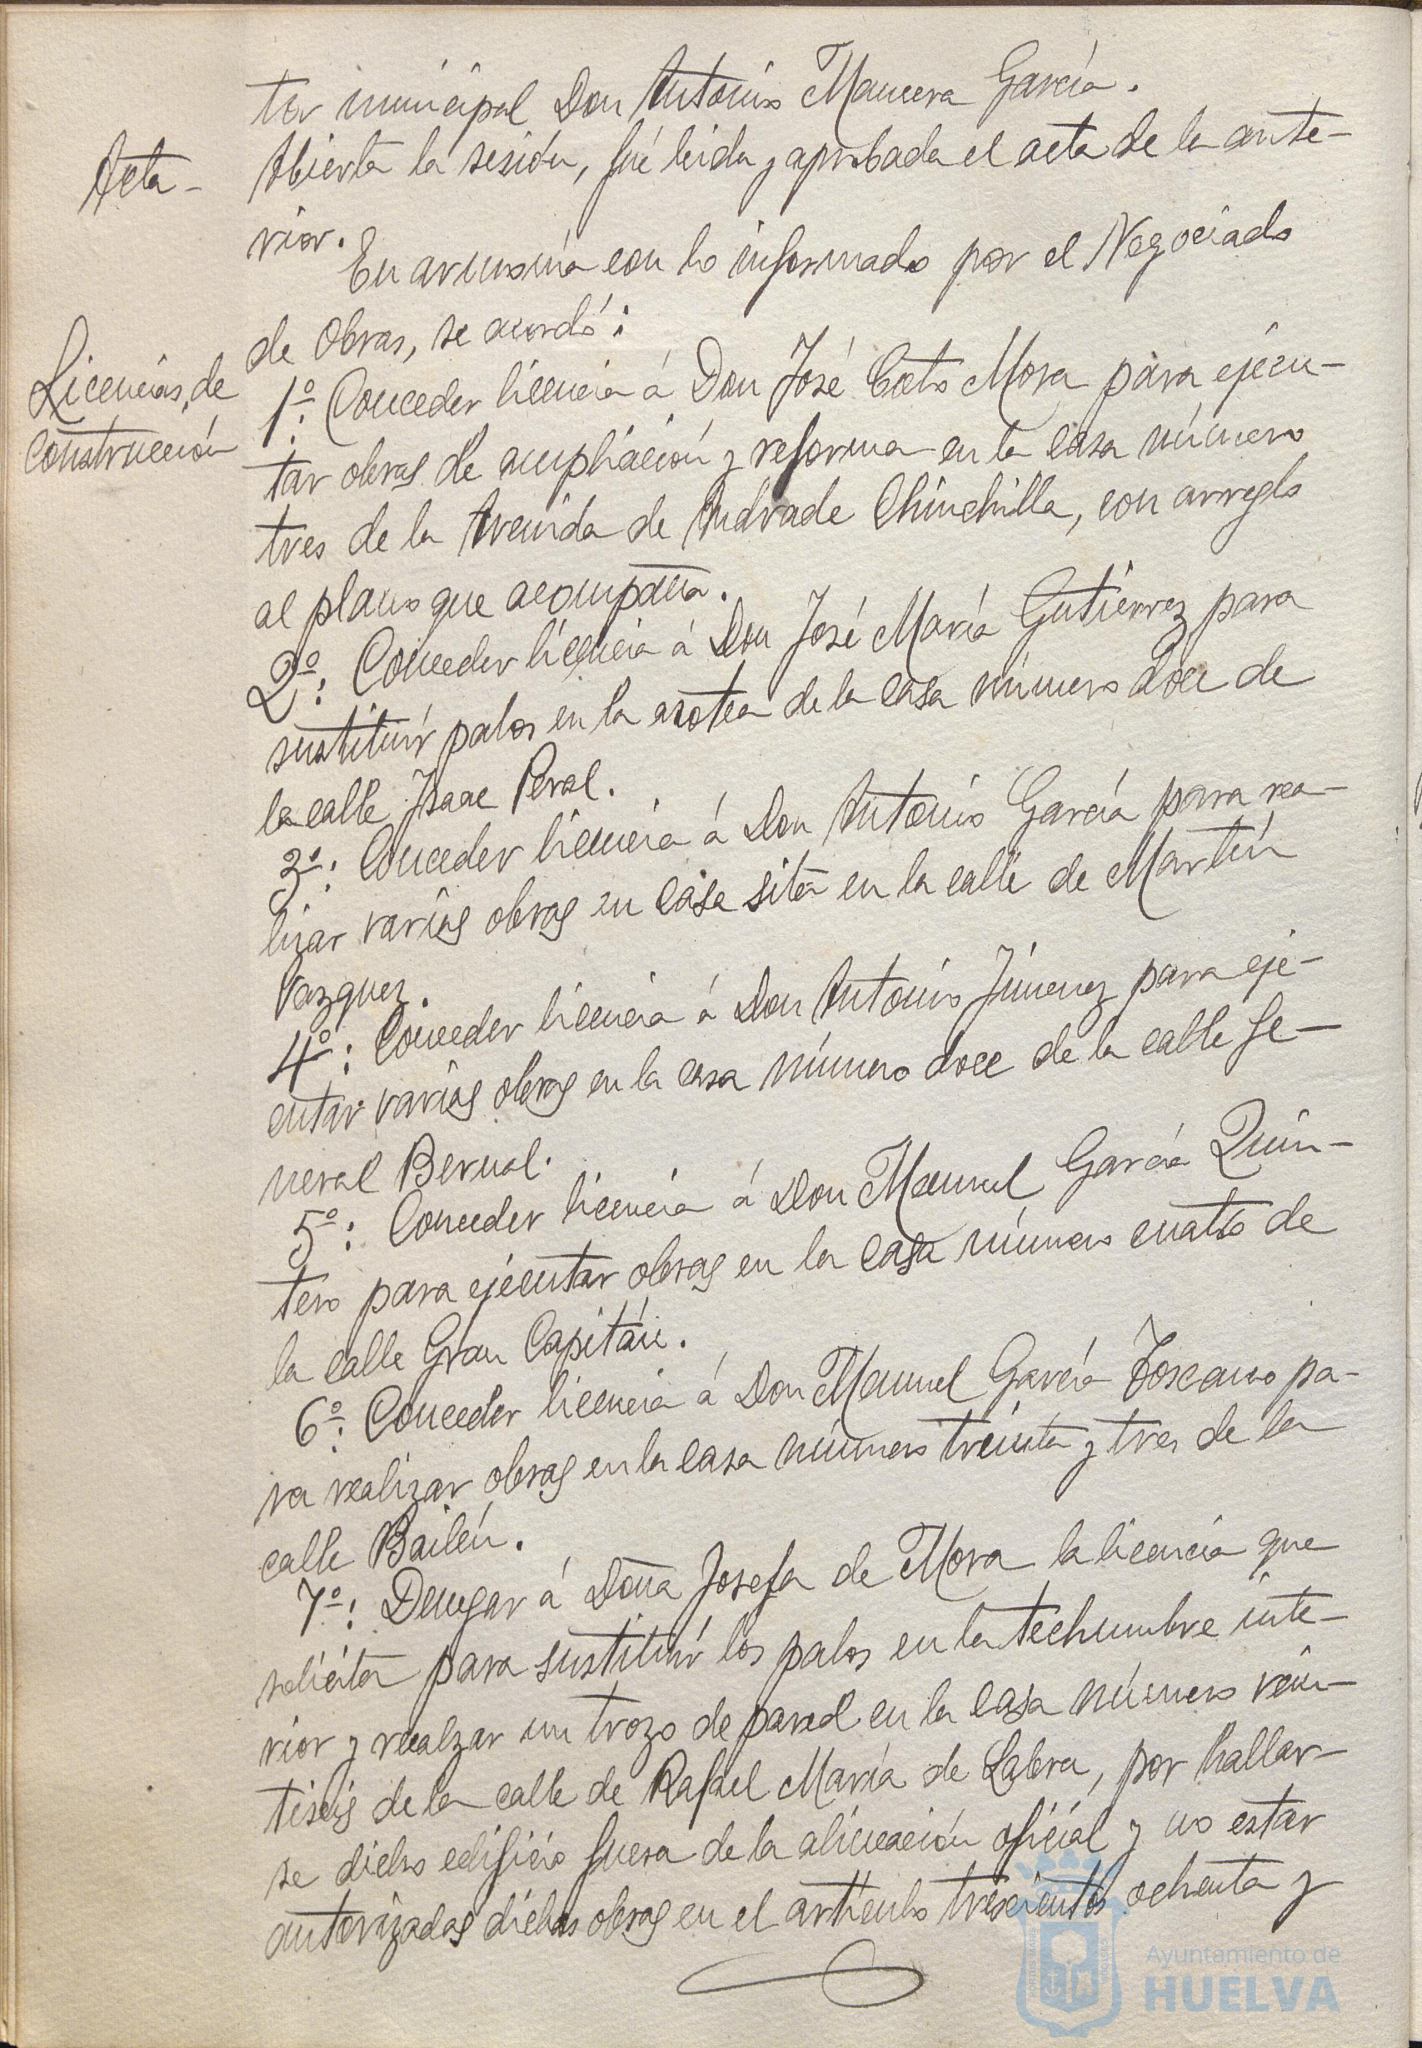 tor municipal Don Antonio Mancera García.
Acta-
Abierta la sesión, fué leida y aprobada el acta de la ante-
rior.
En armonía con lo informado por el Negociado
de Obras, se acordó:
Licencias de
construcción
1º: Conceder licencia á Don José Coto Mora para ejecu-
tar obras de ampliación y reforma en la casa número
tres de la Avenida de Andrade Chinchilla, con arreglo
al plano que acompaña.
2º: Conceder licencia á Don José María Gutiérrez para
sustituír palos en la azotea de la casa número doce de
la calle Isaac Peral.
3º: Conceder licencia á Don Antonio García para rea-
lizar varias obras en casa sita en la calle de Martín
Vazquez.
4º: Conceder licencia á Don Antonio Jímenez para eje-
cutar varias obras en la casa número doce de la calle Ge-
neral Bernal.
5º: Conceder licencia á Don Manuel García Quin-
tero para ejecutar obras en la casa número cuatro de
la calle Gran Capitán.
6º: Conceder licencia á Don Manuel García Toscano pa-
ra realizar obras en la casa número treinta y tres de la
calle Bailén.
7º: Denegar á Doña Josefa de Mora la licencia que
solicita para sustituír los palos en la techumbre inte-
rior y realzar un trozo de pared en la casa número vein-
tiseis de la calle de Rafael María de Labra, por hallar-
se dicho edificio fuera de la alineación oficial y no estar
autorizadas dichas obras en el artículo trescientos ochenta y
Ayuntamiento de
HUELVA